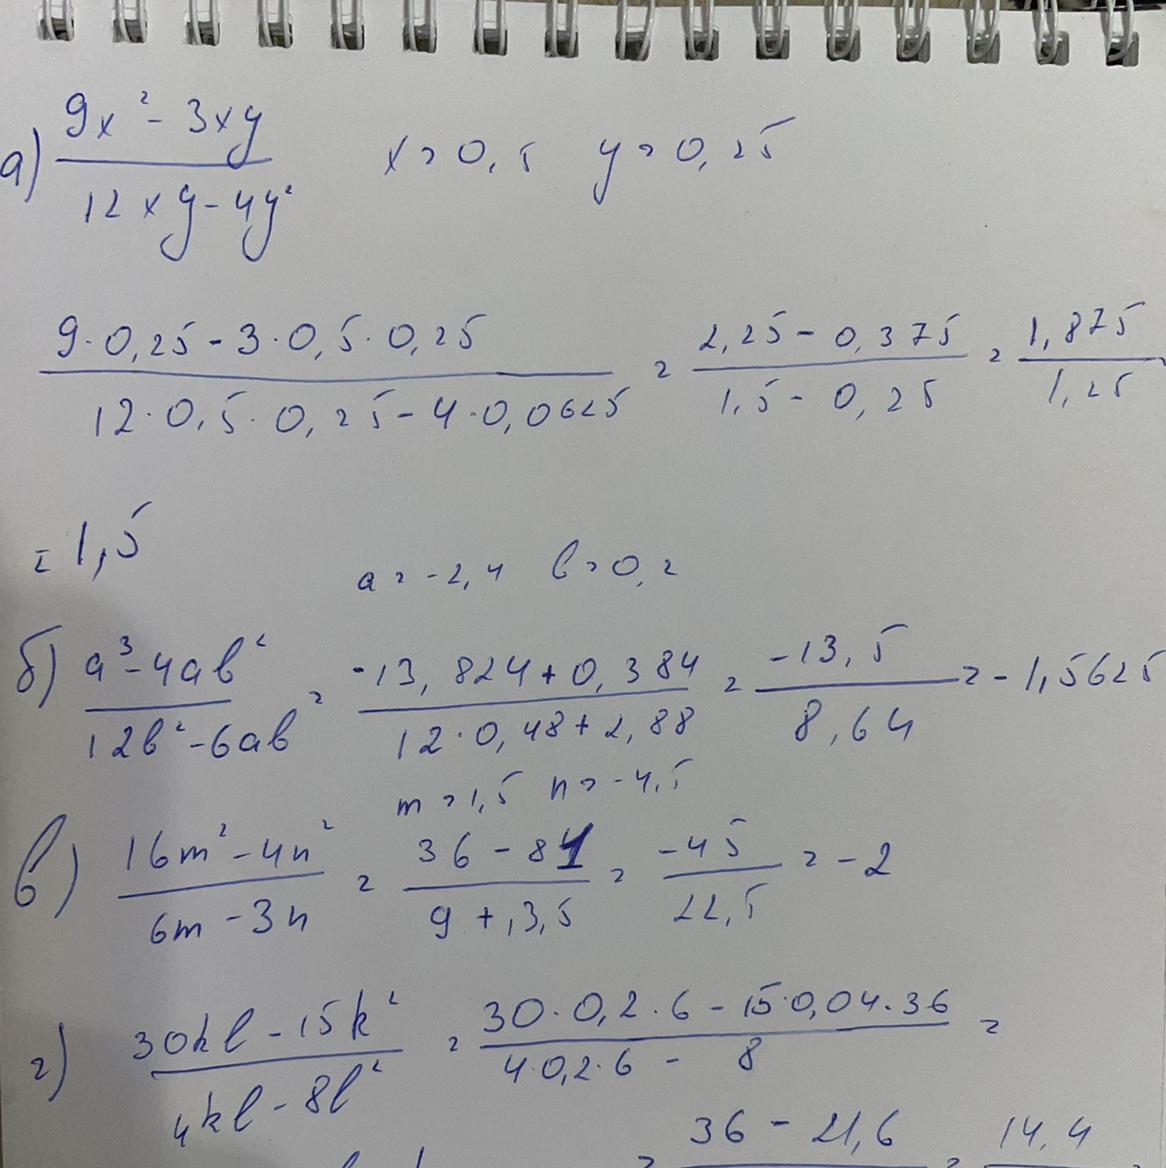 а) (9x² - 3xy) / (12xy - 4y²)   x = 0,5   y = 0,25
(9·0,25 - 3·0,5·0,25) / (12·0,5·0,25 - 4·0,0625) = (2,25 - 0,375) / (1,5 - 0,25) = 1,875 / 1,25
= 1,5
a = -2,4   b = 0,2
б) (a³ - 4ab²) / (12b² - 6ab) = (-13,824 + 0,384) / (12·0,48 + 2,88) = -13,5 / 8,64 = -1,5625
m = 1,5   n = -4,5
в) (16m² - 4n²) / (6m - 3n) = (36 - 81) / (9 + 13,5) = -45 / 22,5 = -2
г) (30kl - 15k²) / (4kl - 8l²) = (30·0,2·6 - 15·0,04·36) / (4·0,2·6 - 8) =
= (36 - 21,6) = 14,4